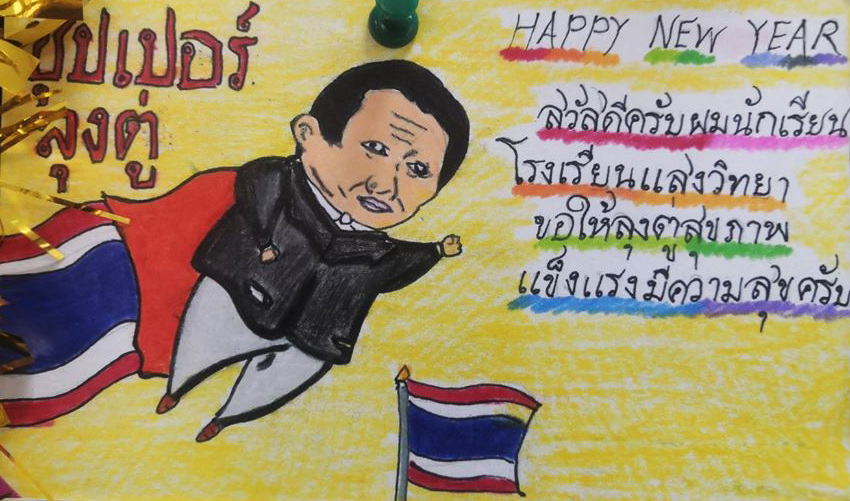 ซุปเปอร์
ลุงตู่
HAPPY NEW YEAR
สวัสดีครับผมนักเรียน
โรงเรียนแสงวิทยา
ขอให้ลุงตู่สุขภาพ
แข็งแรงมีความสุขครับ